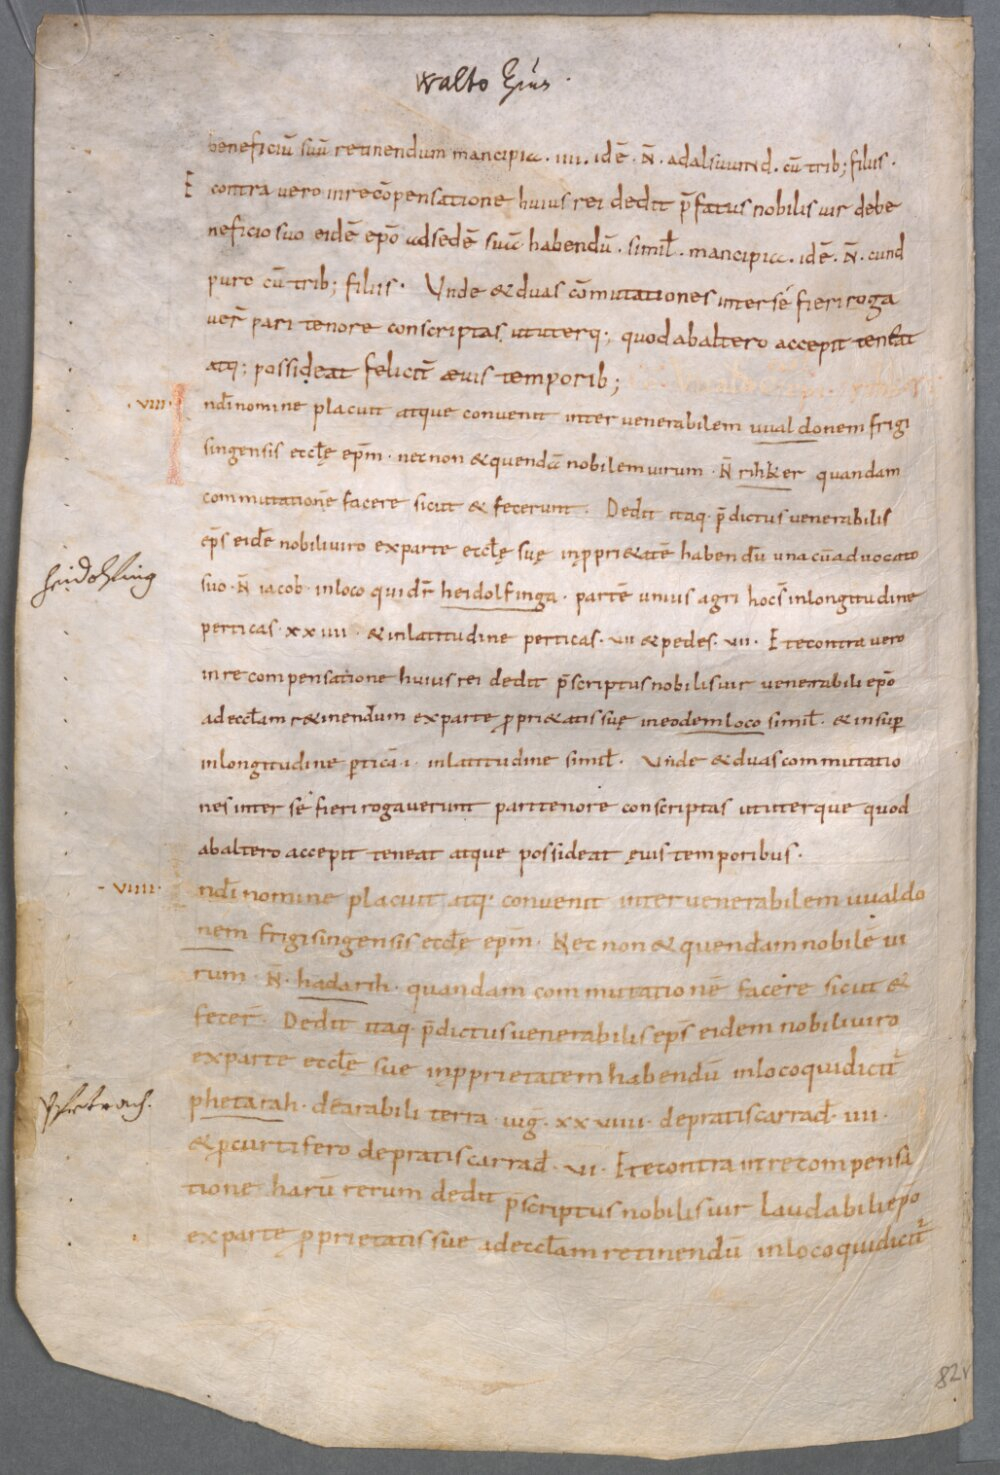 walto Epūs.
beneficiū suū retinendum mancipia . IIII . idē . N̄ . adalsuuind . cū trib; filiis .
E contra vero in recōpensatione huius rei dedit p̄fatus nobilis uir debe
neficio suo eidē ep̄o adsedē suā habendū . simiƚ . mancipia . idē . N̄ . cund
puro cū trib; filiis . Unde & duas cōmutationes inter sé fieri roga
uer̄ pari tenore conscriptas ut uterq; quod ab altero accepit teneat
atq; possideat felicit̄ æuis temporib;
. VIII . Indī nomine placuit atque convenit inter venerabilem uualdonem frigi
singensis eccƚę ep̄m . necnon & quendā nobilem uirum . N̄ rihker quandam
commutationē facere sicut & fecerunt . Dedit itaq . p̄dictus venerabilis
ep̄s eidē nobili viro ex parte eccƚę suę in pprietatē habendū una cū advocato
heidolfing
suo . N̄ iacob . in loco qui dr̄ heidolfinga . partē unius agri hoc ē in longitudine
perticas . xxIIII . & in latitudine perticas . VII & pedes . VII . Et econtra vero
in recompensatione huius rei dedit p̄scriptus nobilis uir venerabili ep̄o
ad eccƚam r&inendum ex parte ppri&atis suę in eodem loco simiƚ . & insup
in longitudine pticā . I . in latitudine simiƚ . Unde & duas commutatio
nes inter sé fieri rogaverunt pari tenore conscriptas ut uterque quod
ab altero accepit teneat atque possideat ęuis temporibus .
. VIIII . Indī nomine placuit atq . convenit inter venerabilem uualdo
nem frigisingensis eccƚę ep̄m . Nec non & quendam nobilē ui
rum . N̄ . hadarih . quandam commutationē facere sicut &
fecer̄ . Dedit itaq . p̄dictus venerabilis ep̄s eidem nobili viro
ex parte eccƚę sue in pprietatem habendū in loco qui dicit̄
Pfetrach.
phetarah . de arabili terra . iuḡ . xxVIIII . de pratis carrad̄ . IIII .
& p curtifero de pratis carrad̄ . VI . Et econtra in recompensa
tione harū rerum dedit p̄scriptus nobilis uir laudabili ep̄o
ex parte pprietatis sue ad eccƚam retinendū in loco qui dicit̄
82v